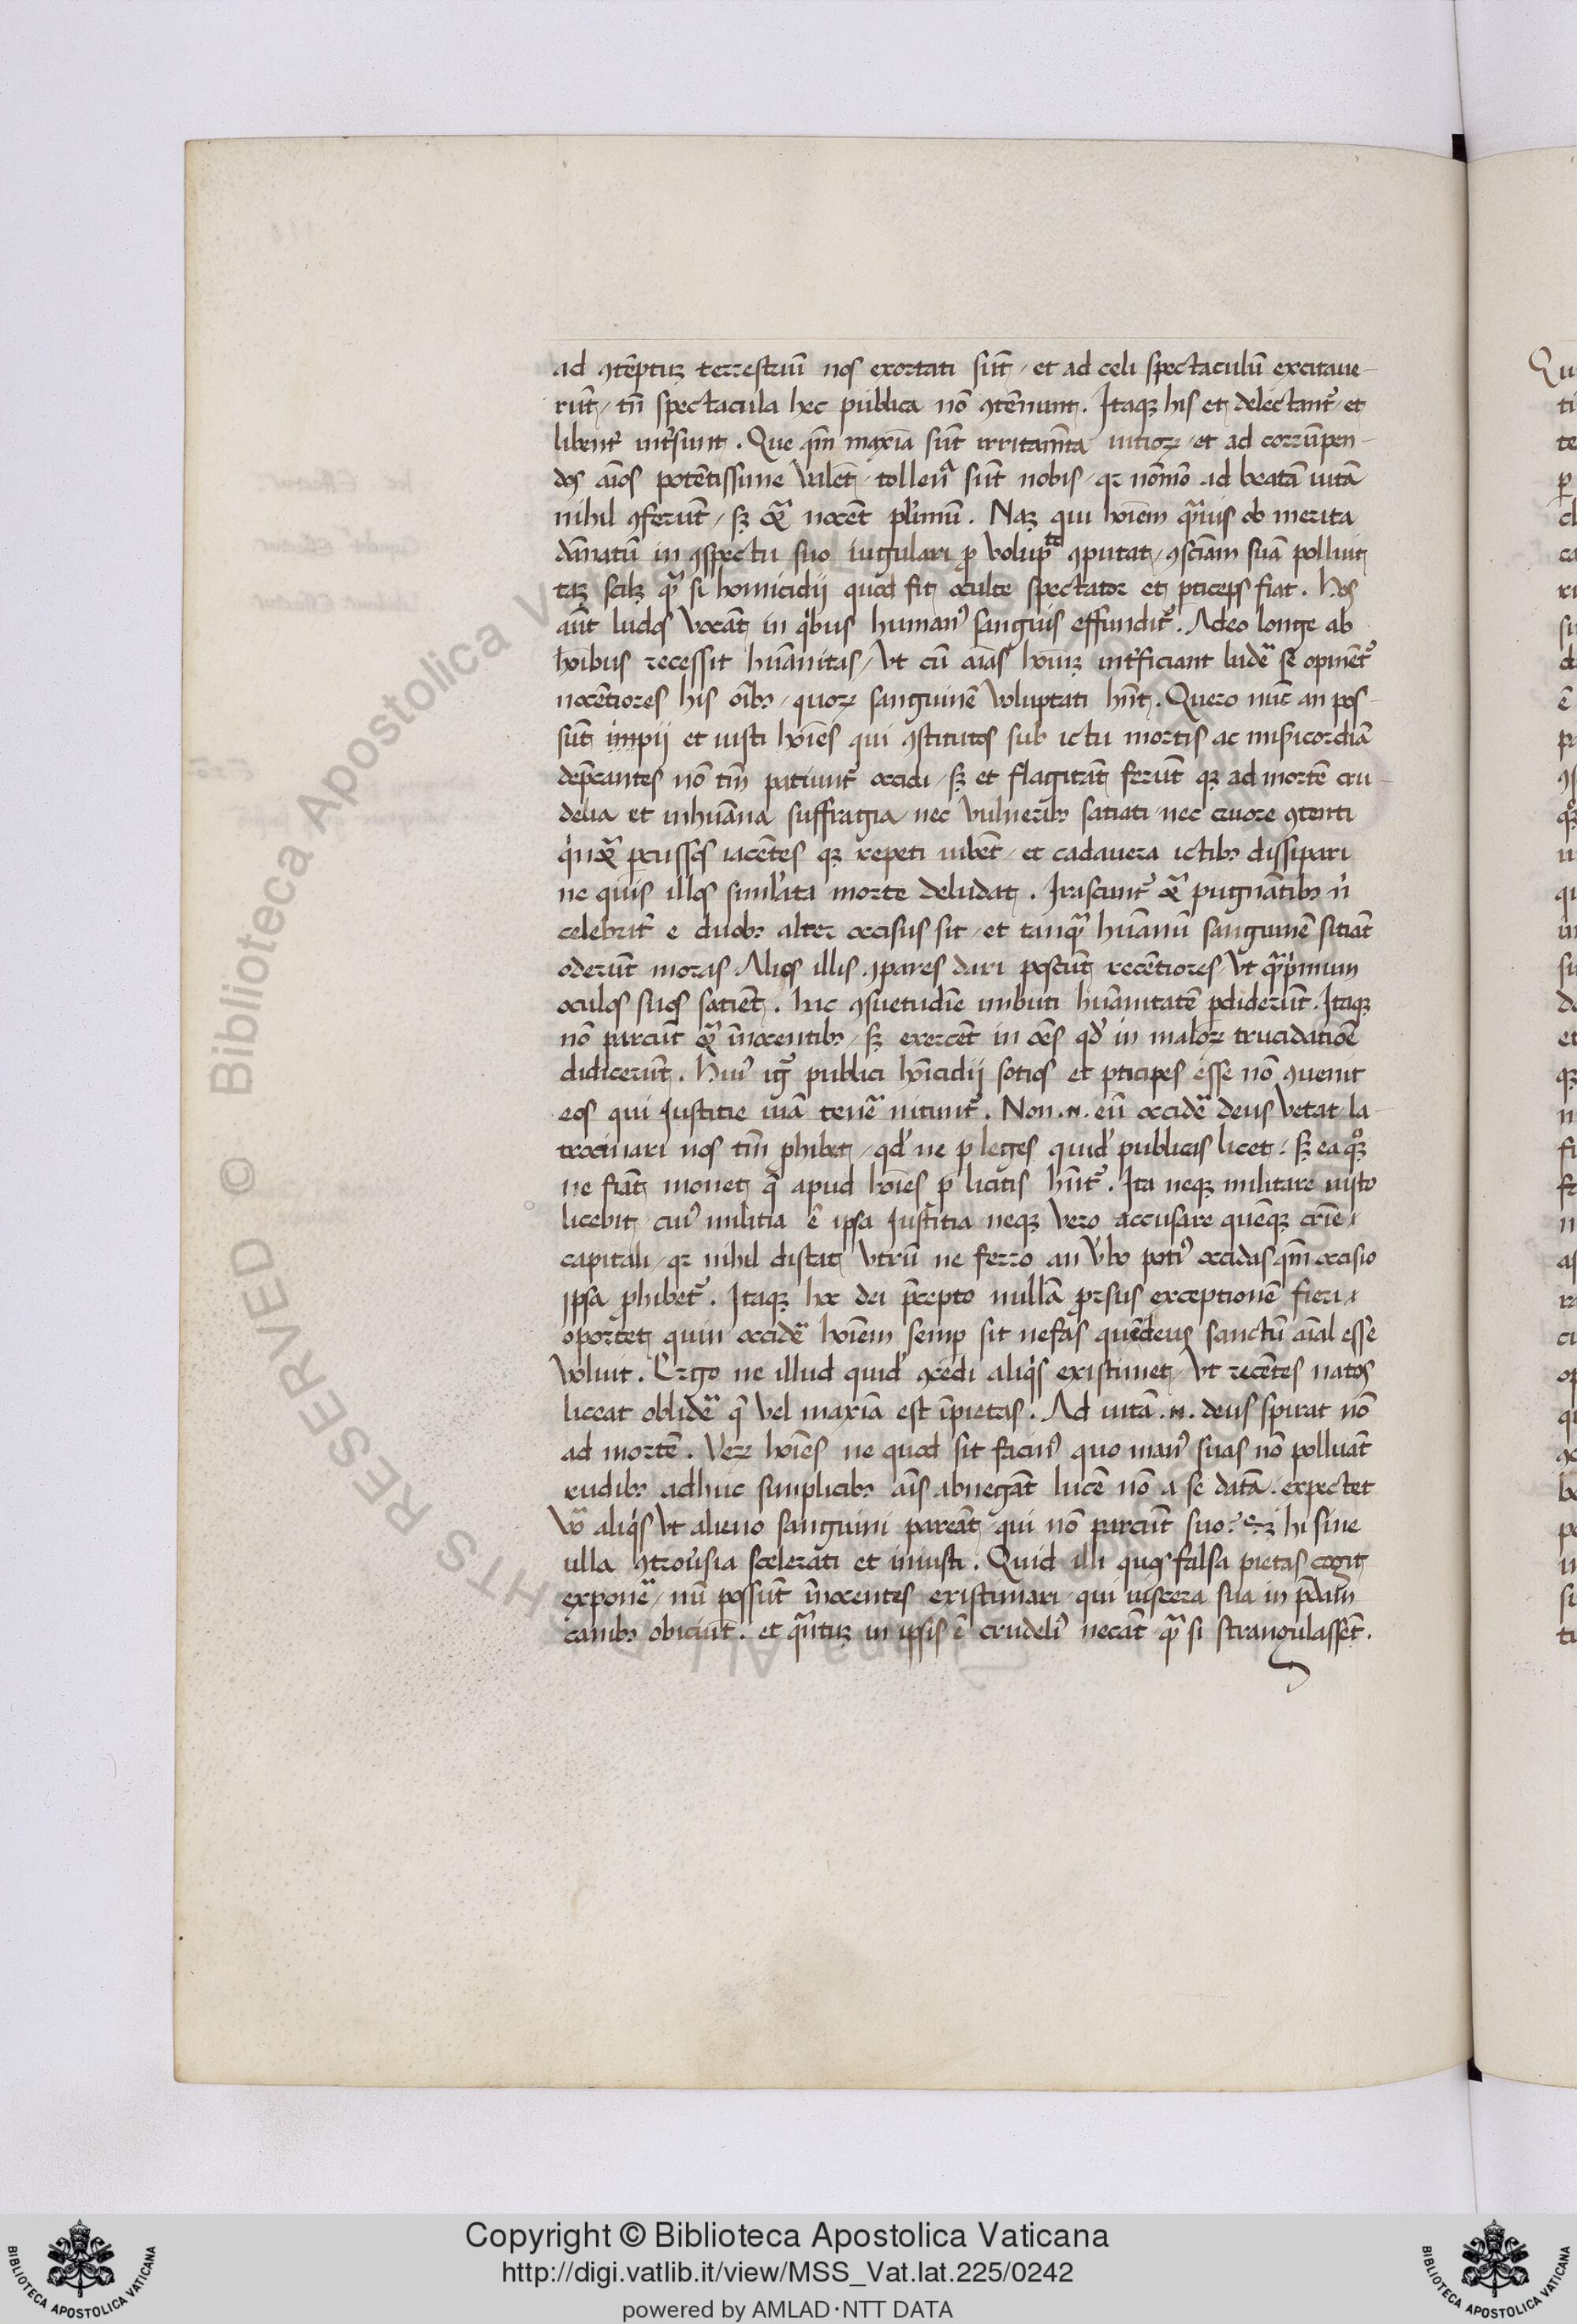 ad ꝯtēptuꝫ terrestriū nos exortati sūt / et ad celi spectaculū excitaue-
rūt / tn̄ spectacula hec publica nō ꝯtēnunt. Itaqꝫ his et delectant᷑ / et
libent᷑ int᷑sunt. Que qm̄ maxīa sūt irritam̄ta uitioꝝ / et ad corrūpen-
dos aīos potētissime vālēt / tollen̄ᵃ sūt nobis / qꝛ nōmō ad beatā uitā
nihil ꝯferūt / sꝫ &ᷓ nocēt pl̄imū. Naꝫ qui hoīem qᷓuis ob merita
dānatū in ꝯspectu suo iugulari ꝓ volupᵗᵉ ꝯputat / ꝯsciām suā polluit
taꝫ scilꝫ qᷓ si homicidij quod fit oculte spectator et ꝑticeps fiat. hos
aūt ludos vocāt in qͥbus humanꝰ sanguis effundit᷑. Adeo longe ab
hoībus recessit hūanitas / vt cū aīas hoīuꝫ int᷑ficiant ludē se opinēt᷑
nocētiores his oībꝫ / quoꝝ sanguinē voluptati hn̄t. Quero nūc an pos-
sūt impij et iusti hoīes qui ꝯstitutos sub ictu mortis ac mīsicordiā
dep̄cantes nō tm̄ patiunt᷑ occidi / sꝫ et flagitāt ferūt qꝫ ad mortē cru-
delia et inhūana suffragia / nec vulneribꝫ satiati nec cruore ꝯtenti
qͥn&ᷓ ꝑcussos iacētes qꝫ repeti iubēt / et cadauera ictibꝫ dissipari
ne quis illos siml̄ata morte deludat. Irascunt᷑ &ᷓ pugnātibꝫ nͥ
celebrit᷑ e duobꝫ alter occisus sit / et tanqᷓ hūanū sanguinē sitiāt
oderūt moras Alios illis ꝯpares dari poscūt recētiores / vt qᷓpͥmum
oculos suos satiēt. hac ꝯsuetudīe imbuti hūanitatē ꝑdiderūt. Itaqꝫ
nō parcūt &ᷓ īnocentibꝫ / sꝫ exercēt in oēs qd̓ in maloꝝ trucidatiōe
didicerūt. huiꝰ igᷓ publici hoīcidij sotios et ꝑticipes esse nō ꝯuenit
eos qui Justitie uiā tenē nitunt᷑. Non .n. cū occidē deus vetat la-
trocinari nos tm̄ ꝓhibet / qd̓ ne ꝑ leges quid̓ publicas licet. sꝫ ea qꝫ
ne fiāt monet q̄ apud hoīes ꝑ licitis hn̄t᷑. Ita neqꝫ militare iusto
licebit / cuiꝰ militia ē ipsa Justitia neqꝫ vero accusare quēqꝫ crīe
capitali / qꝛ nihil distat vtrū ne ferro an v̓bo potiꝰ occidas qm̄ occisio
ipsa ꝓhibet᷑. Itaqꝫ hoc dei p̄cepto nullā ꝓrsus exceptionē fieri
oportet quin occidē hoīem semꝑ sit nefas quē deus sanctū aīal esse
voluit. Ergo ne illud quid̓ ꝯcedi aliqͥs existimet / vt recētes natos
liceat oblidē q̄ vel maxīa est īpietas. Ad uitā .n. deus spirat nō
ad mortē. Veꝝ hoīes ne quod sit facinꝰ quo manꝰ suas nō polluāt
rudibꝫ adhuc simplicibꝫ aīs abnegāt lucē nō a se datā. expectet
v̓o aliqͥs vt alieno sanguini parcāt qui nō parcūt suo. sꝫ hi sine
ulla ꝯtrou̓sia scelerati et iniusti. Quid illi quos falsa pietas cogit
exponē / nū possūt īnocentes existimari qui uiscera sua in p̄dam
canibꝫ obiciūt. et qᷓntuꝫ in ipsis ē crudeliꝰ necāt qᷓ si strangulassēt.
Copyright © Biblioteca Apostolica Vaticana
http://digi.vatlib.it/view/MSS_Vat.lat.225/0242
powered by AMLAD·NTT DATA